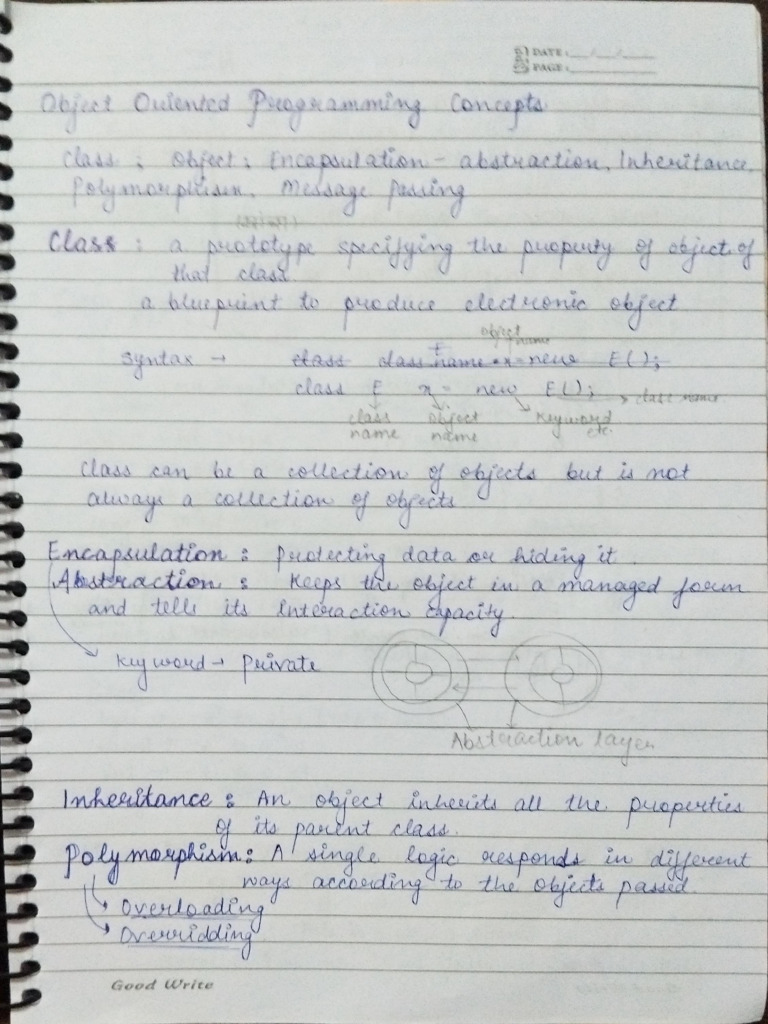 DATE:
PAGE:
Object Oriented Programming Concepts
Class; Object; Encapsulation - abstraction, Inheritance,
Polymorphism, Message passing
(सांचा)
Class: a prototype specifying the property of object of
that class
a blueprint to produce electronic object
object name
Syntax → class class name x = new E();
class E x = new E(); → class name
class name object name Keyword etc.
Class can be a collection of objects but is not
always a collection of objects
Encapsulation: Protecting data or hiding it.
Abstraction: Keeps the object in a managed form
and tells its Interaction capacity.
Keyword → Private
Abstraction layer
Inheritance: An object inherits all the properties
of its parent class.
Polymorphism: A single logic responds in different
ways according to the objects passed.
Overloading
Overridding
Good Write